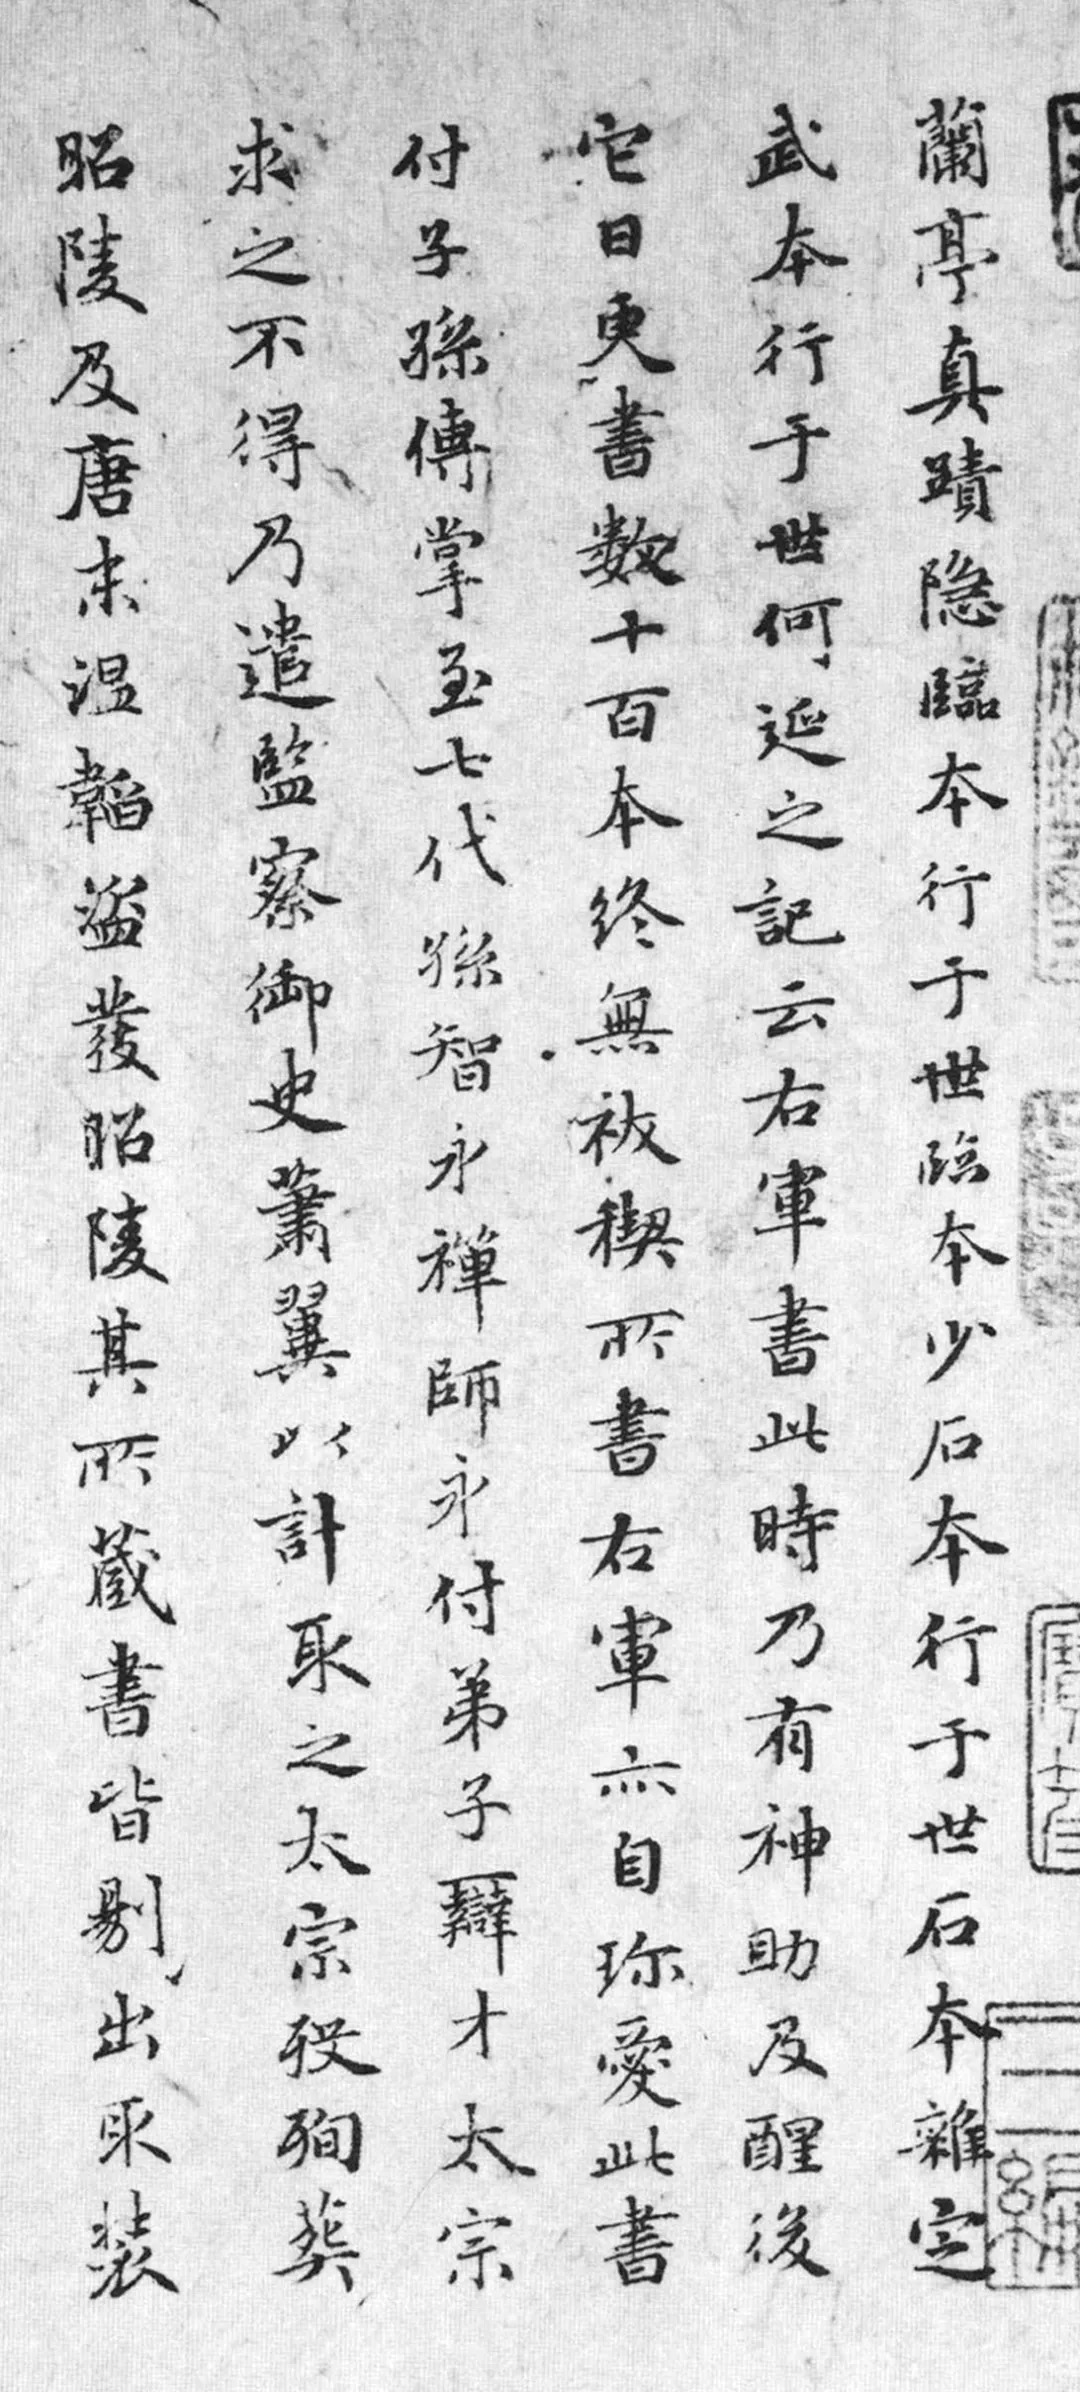 蘭亭真蹟隐臨本行于世臨本少石本行于世石本雜定
武本行于世何延之記云右軍書此時乃有神助及醒後
它日更書數十百本終無袚禊所書右軍亦自珎愛此書
付子孫傳掌至七代孫智永禪師永付弟子辯才太宗
求之不得乃遣監察御史蕭翼以計取之太宗殁殉葬
昭陵及唐末温韜盗發昭陵其所蔵書皆剔出取装